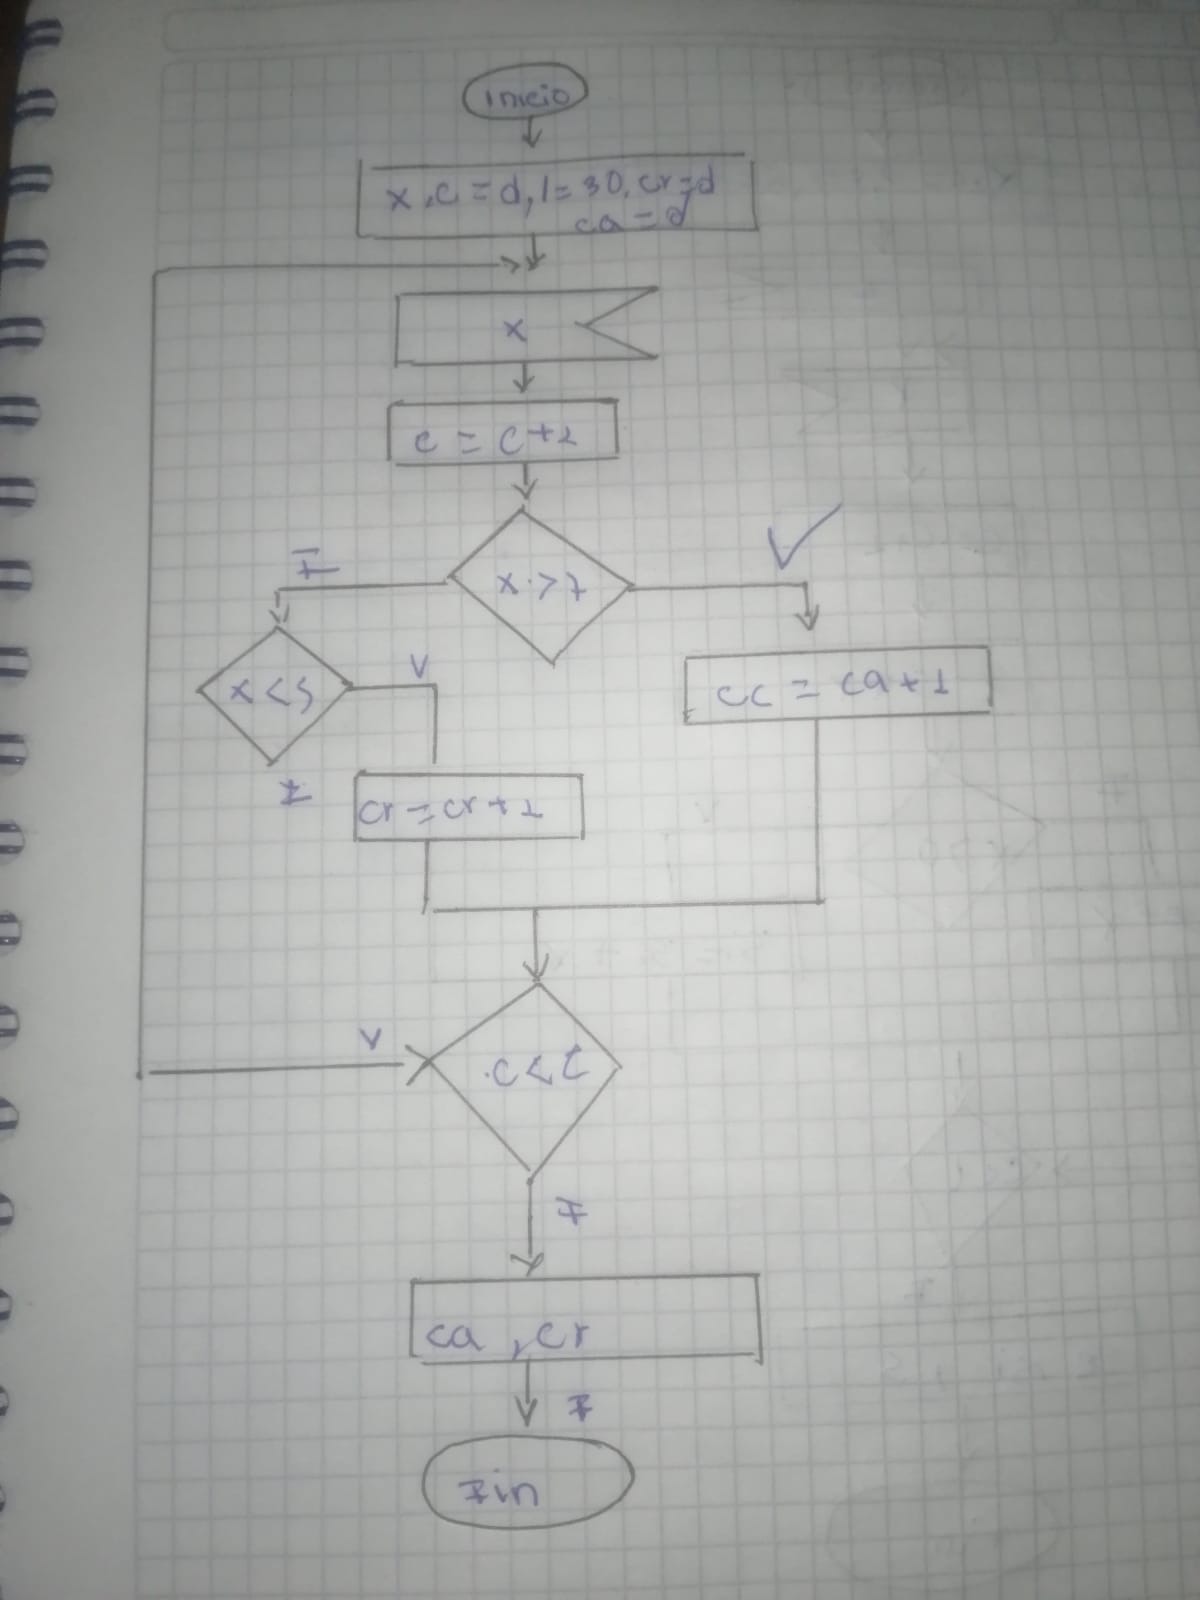 Inicio
x, c = d, l = 30, cr = d
ca = d
x
c = c + 1
F
x > 7
x < 5
V
cc = ca + 1
F
cr = cr + 1
V
c < l
F
ca, cr
F
Fin